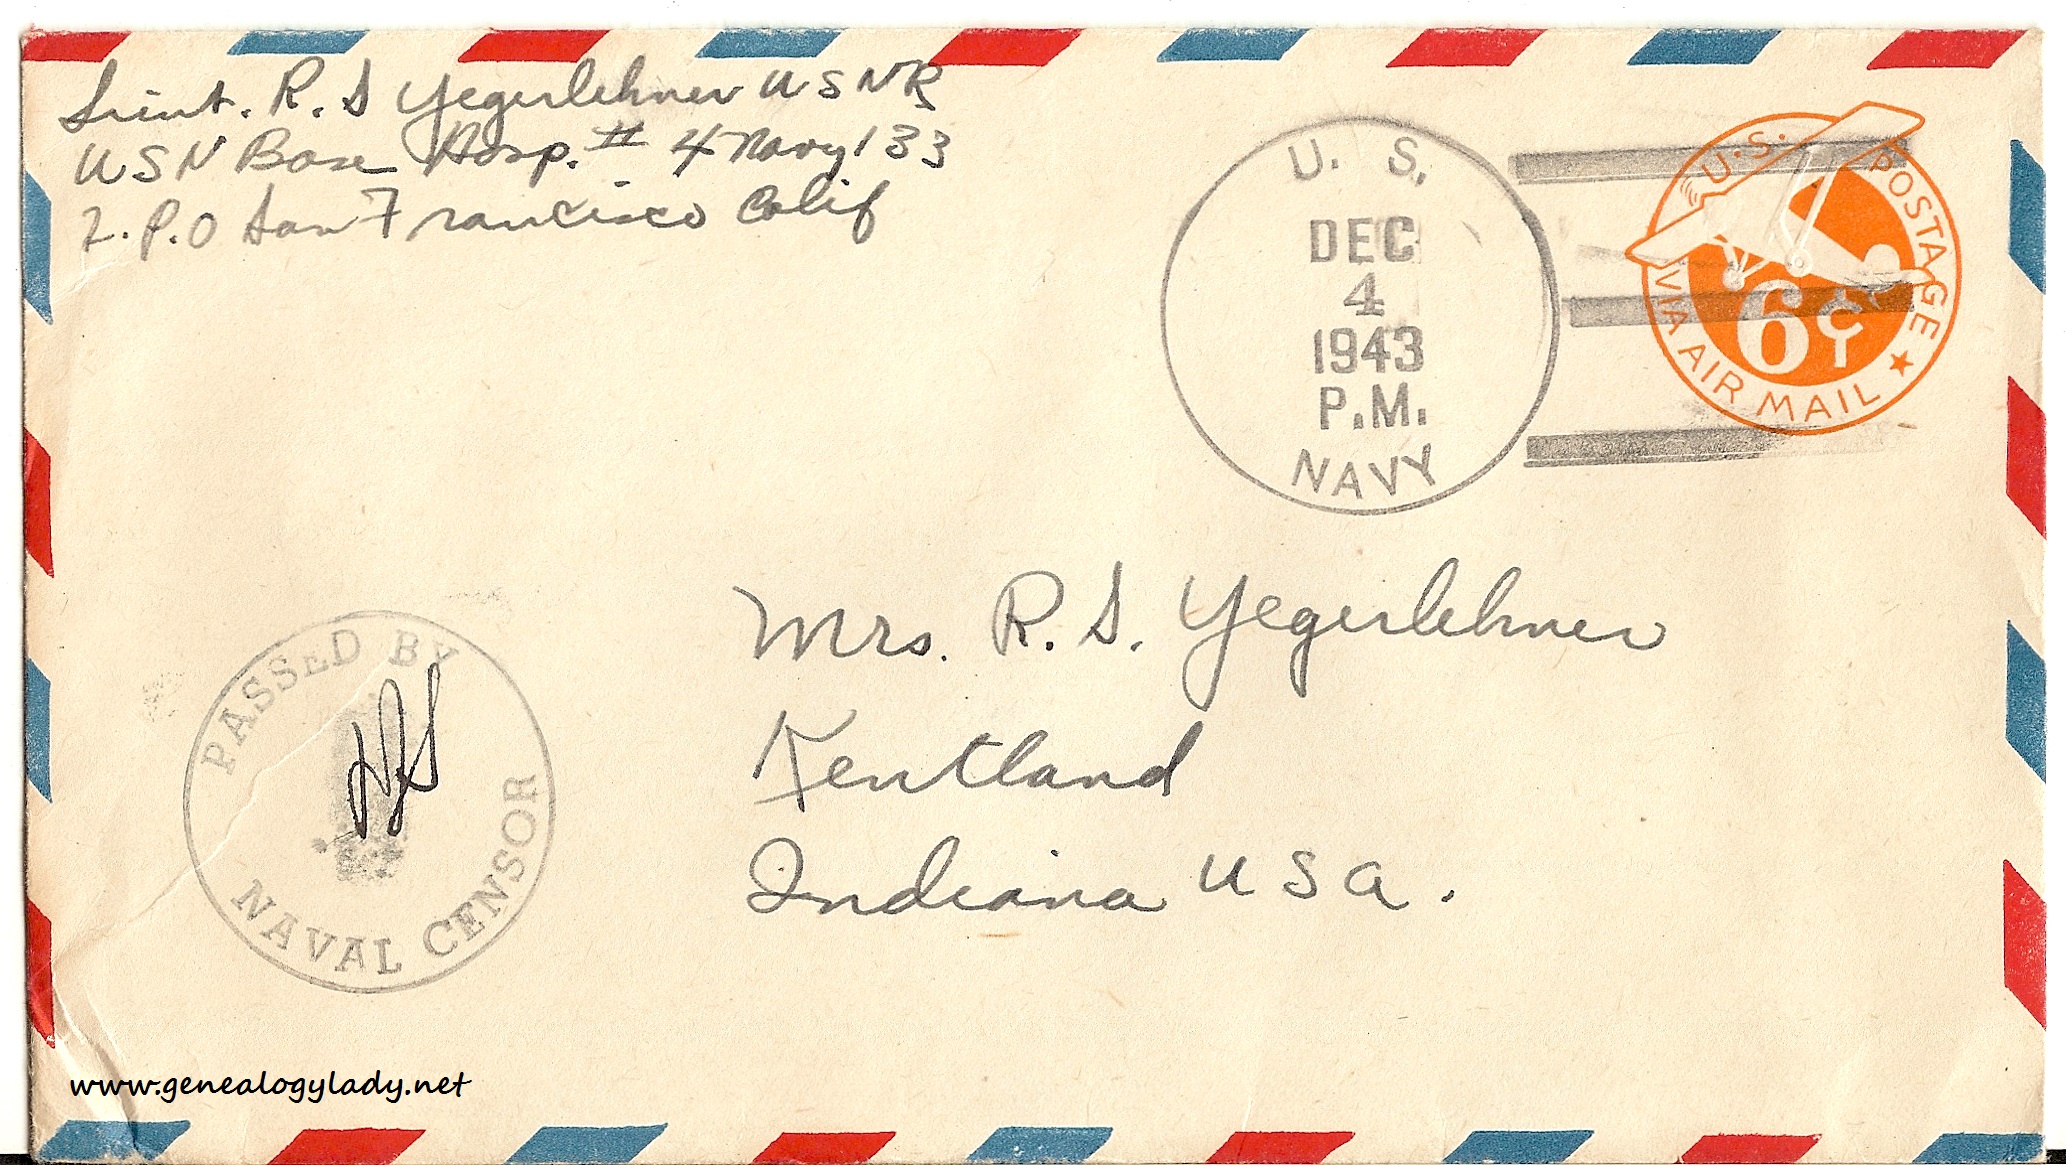 Lieut. R. S Yegerlehner USNR
USN Base Hosp. # 4 Navy 133
F.P.O San Francisco Calif
U. S.
DEC
4
1943
P.M.
NAVY
U.S. POSTAGE
6¢
VIA AIR MAIL
Mrs. R. S. Yegerlehner
Kentland
Indiana USA.
PASSED BY
NAVAL CENSOR
www.genealogylady.net